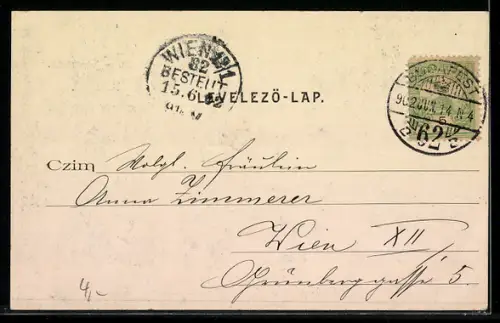 WIEN 12/1
82
BESTELLT
15.6.02
LEVELEZŐ-LAP.
BUDAPEST
902 JUN. 14 N 4
62
Czim Wolgb. Fräulein
Anna Zimmerer
Wien XII
Grünberggasse 5.
4/-